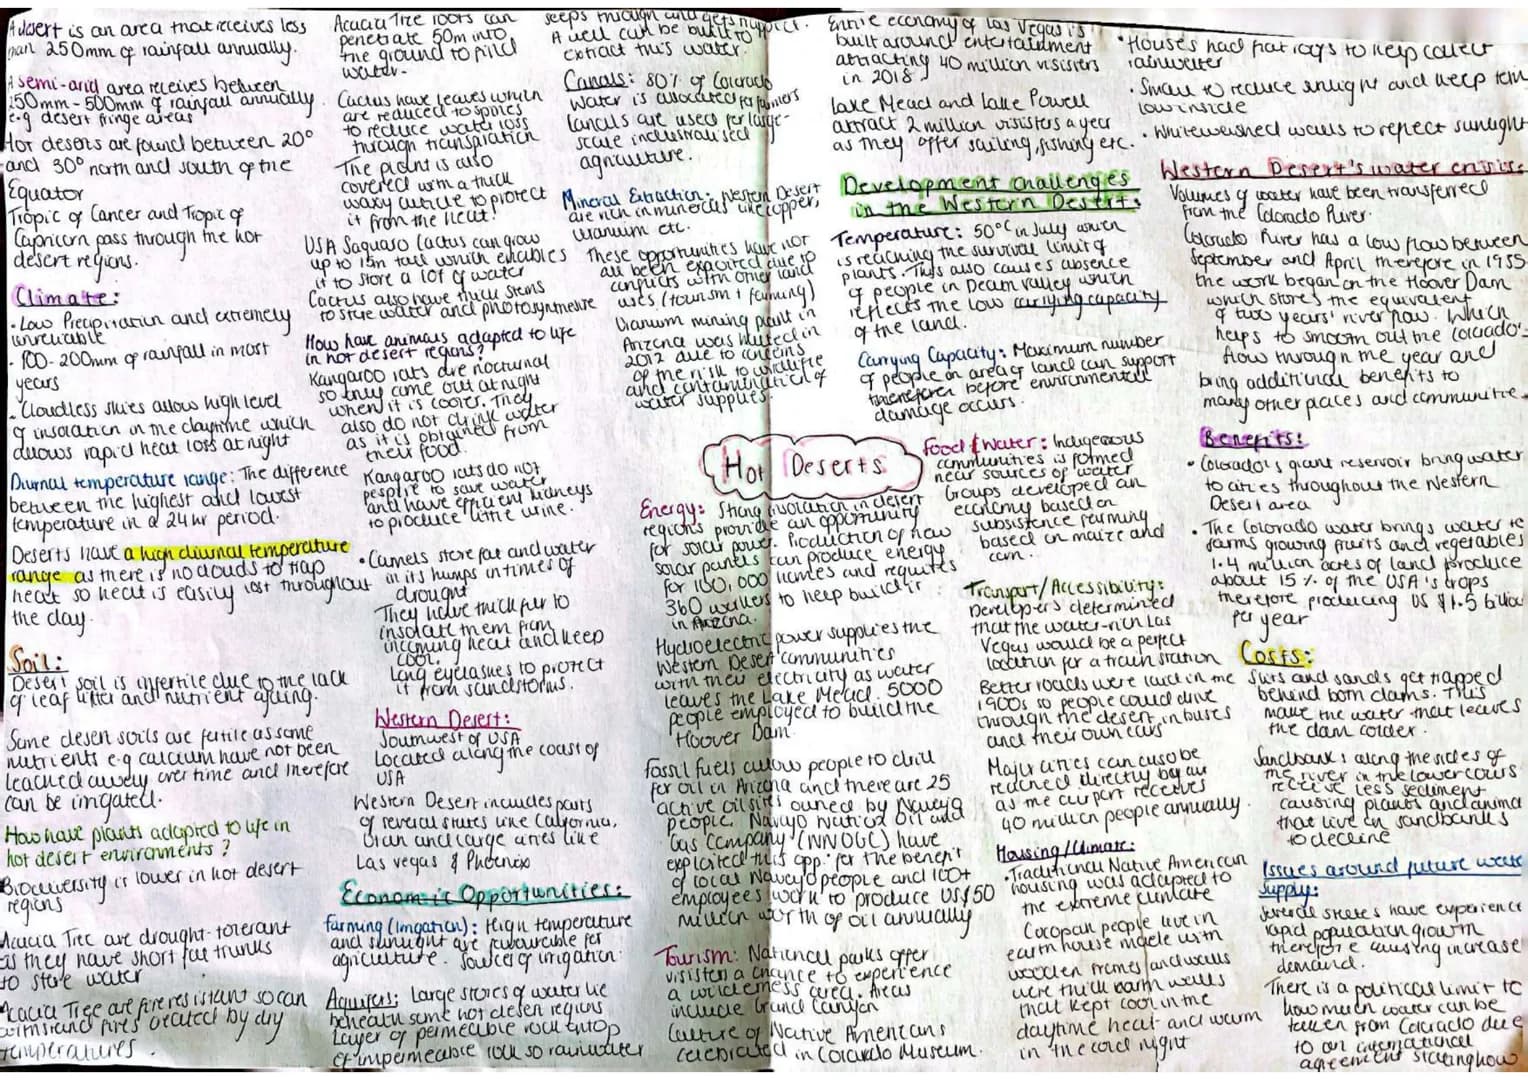 A desert is an area that receives less
than 250mm of rainfall annually.
A semi-arid area receives between
250mm - 500mm of rainfall annually.
e.g desert fringe areas
Hot deserts are found between 20°
and 30° north and south of the
Equator
Tropic of Cancer and Tropic of
Capricorn pass through the hot
desert regions.
Climate:
• Low Precipitation and extremely
unreliable
• 100-200mm of rainfall in most
years
• Cloudless skies allow high level
of insolation in the daytime which
allows rapid heat loss at night
Diurnal temperature range: The difference
between the highest and lowest
temperature in a 24 hr period.
Deserts have a high diurnal temperature
range as there is no clouds to trap
heat so heat is easily lost throughout
the day.
Soil:
Desert soil is infertile due to the lack
of leaf litter and nutrient cycling.
Some desert soils are fertile as some
nutrients e.g calcium have not been
leached away over time and therefore
can be irrigated.
How have plants adapted to life in
hot desert environments?
Biodiversity is lower in hot desert
regions
Acacia Tree are drought-tolerant
as they have short fat trunks
to store water
Acacia Tree are fire resistant so can
withstand fires created by dry
temperatures.
Acacia Tree roots can
penetrate 50m into
the ground to find
water.
Cactus have leaves which
are reduced to spines
to reduce water loss
through transpiration
The plant is also
covered with a thick
waxy cuticle to protect
it from the heat!
USA Saguaro Cactus can grow
up to 15m tall which enables
it to store a lot of water
Cactus also have thick stems
to store water and photosynthesise
How have animals adapted to life
in hot desert regions?
Kangaroo rats are nocturnal
so they come out at night
when it is cooler. They
also do not drink water
as it is obtained from
their food.
Kangaroo rats do not
pespire to save water
and have efficient kidneys
to produce little urine.
• Camels store fat and water
in its humps in times of
drought
They have thick fur to
insolate them from
incoming heat and keep
cool.
Long eyelashes to protect
it from sandstorms.
Western Desert:
Southwest of USA
Located along the coast of
USA
Western Desert includes parts
of several states like California,
Utah and large cities like
Las vegas & Phoenix
Economic Opportunities:
Farming (irrigation): High temperature
and sunlight are favourable for
agriculture. Sources of irrigation:
Aquifers: Large stores of water lie
beneath some hot desert regions
Layer of permeable rock on top
of impermeable rock so rainwater
seeps through and gets
A well can be built to
extract this water.
Canals: 80% of Colorado
Water is allocated for farmers
Canals are used for large-
scale industrialised
agriculture.
Mineral Extraction: Western Desert
are rich in minerals like copper,
uranium etc.
These opportunities have not
all been exploited due to
conflicts with other land
uses (tourism + farming)
Uranium mining plant in
Arizona was halted in
2012 due to concerns
of the risk to wildlife
and contamination of
water supplies.
Hot Deserts
Energy: Strong insolation in desert
regions provide an opportunity
for solar power. Production of new
solar panels can produce energy
for 100,000 homes and requires
360 workers to help build it
in Arizona.
Hydroelectric power supplies the
Western Desert communities
with their electricity as water
leaves the Lake Mead. 5000
people employed to build the
Hoover Dam.
Fossil fuels allows people to drill
for oil in Arizona and there are 25
active oil sites owned by Navajo
people. Navajo Nation Oil and
Gas Company (NNOGC) have
exploited this opp. for the benefit
of local Navajo people and 100+
employees work to produce US$50
million worth of oil annually
Tourism: National parks offer
visisters a chance to experience
a wilderness area. Areas
include Grand Canyon
Culture of Native Americans
celebrated in Colorado Museum.
Entire economy of Las Vegas is
built around entertainment
attracting 40 million visisters
in 2018
Lake Mead and Lake Powell
attract 2 million visisters a year
as they offer sailing, fishing etc.
Development challenges
in the Western Desert:
Temperature: 50°C in July which
is reaching the survival limit of
plants. This also causes absence
of people in Death Valley which
reflects the low carrying capacity
of the land.
Carrying Capacity: Maximum number
of people an area of land can support
before environmental
damage occurs.
Food & Water: Indigenous
communities is formed
near sources of water
Groups developed an
economy based on
subsistence farming
based on maize and
corn.
Transport/Accessibility:
Developers determined
that the water-rich Las
Vegas would be a perfect
location for a train station
Better roads were laid in the
1900s so people could drive
through the desert in buses
and their own cars
Major cities can also be
reached directly by air
as the airport receives
40 million people annually.
Housing/Climate:
• Traditional Native American
housing was adapted to
the extreme climate
Cocopah people live in
earth house made with
wooden frames and walls
were thick earth walls
that kept cool in the
daytime heat and warm
in the cold night
• Houses had flat roofs to help collect
rainwater
• Small to reduce sunlight and keep
low inside
• Whitewashed walls to reflect sunlight
Western Desert's water crisis:
Volumes of water have been transferred
from the Colorado River.
Colorado River has a low flow between
September and April therefore in 1935
the work began on the Hoover Dam
which stores the equivalent
of two years' river flow. Which
helps to smooth out the Colorado's
flow through the year and
bring additional benefits to
many other places and communities.
Benefits:
• Colorado's giant reservoir bring water
to cities throughout the Western
Desert area
• The Colorado water brings water to
farms growing fruits and vegetables
1.4 million acres of land produce
about 15% of the USA's crops
therefore producing US $1.5 billion
per year
Costs:
Silts and sands get trapped
behind both dams. This
make the water that leaves
the dam colder.
Sandbanks along the sides of
the river in the lower course
receive less sediment
causing plants and animals
that live on sandbanks
to decline
Issues around future water
supply:
Several states have experience
rapid population growth
therefore causing increase
demand.
There is a political limit to
how much water can be
taken from Colorado due
to an international
agreement stating how